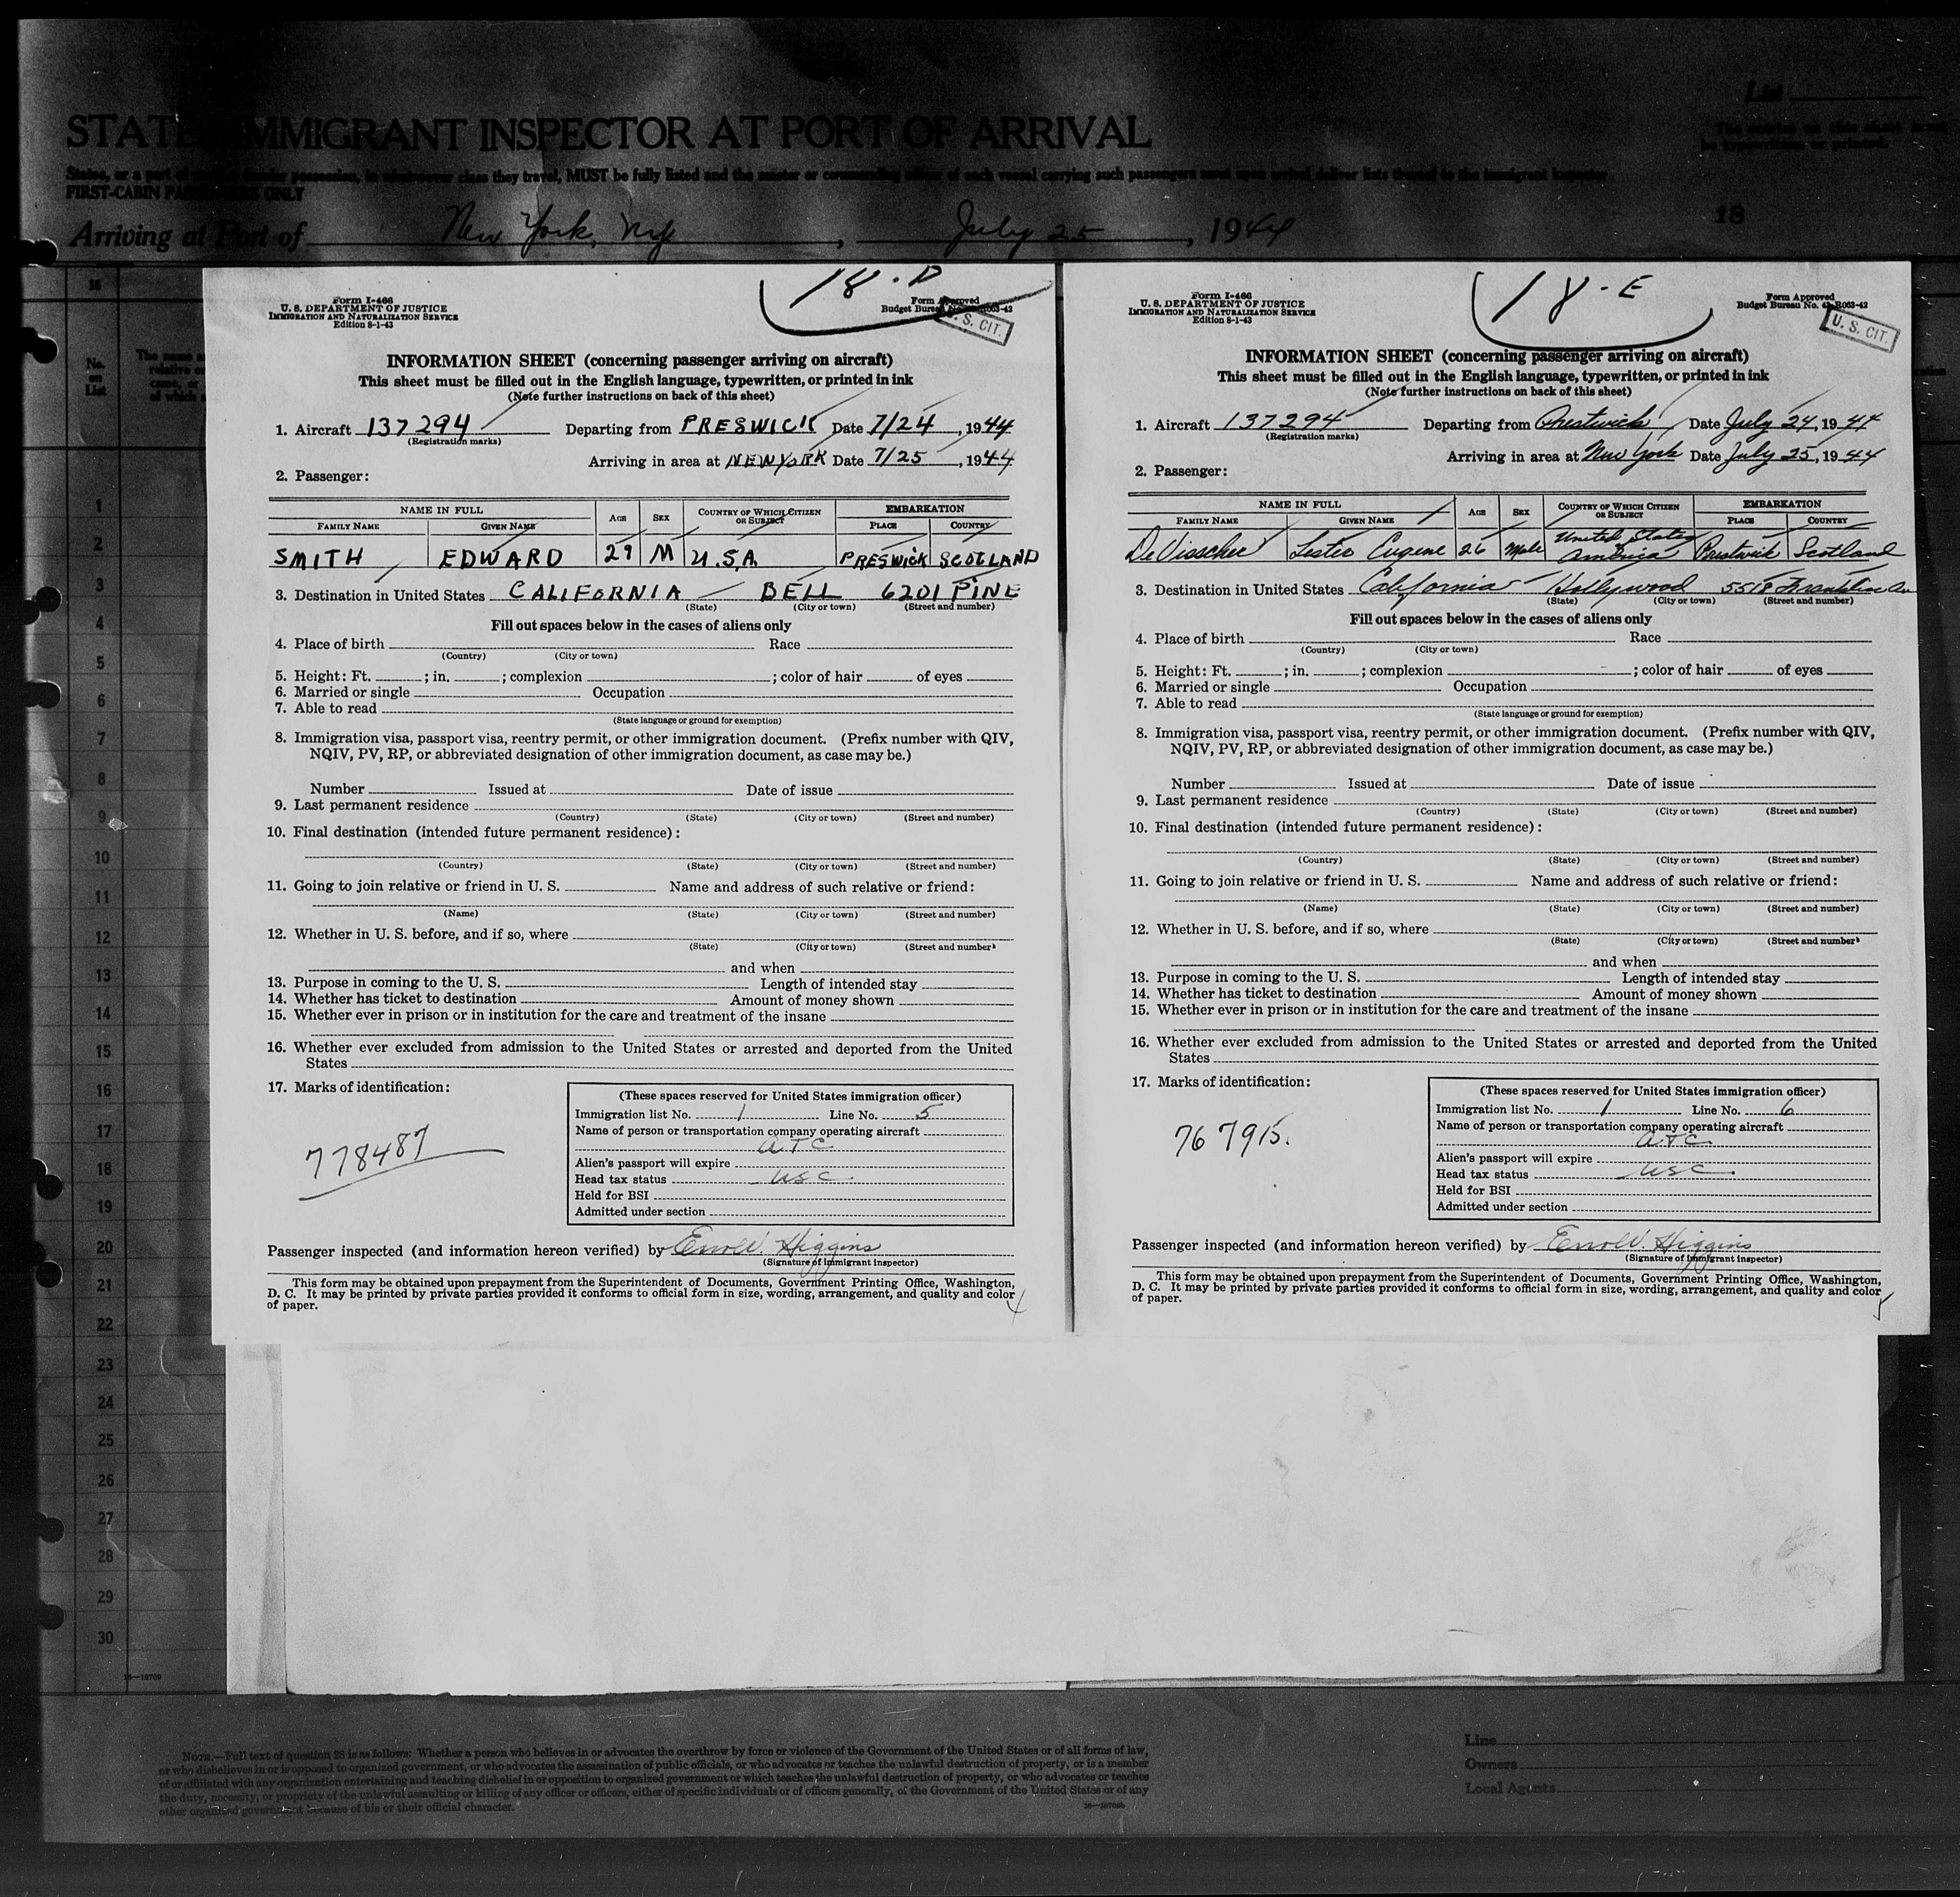 STATE IMMIGRANT INSPECTOR AT PORT OF ARRIVAL
FIRST-CABIN PASSENGERS ONLY
Arriving at Port of New York, NY, July 25, 1944
18
List
No. on List
18-D
Form I-466
U. S. DEPARTMENT OF JUSTICE
IMMIGRATION AND NATURALIZATION SERVICE
Edition 8-1-43
Form Approved
Budget Bureau No. R063-42
U. S. CIT.
INFORMATION SHEET (concerning passenger arriving on aircraft)
This sheet must be filled out in the English language, typewritten, or printed in ink
(Note further instructions on back of this sheet)
1. Aircraft 137294 Departing from PRESWICK Date 7/24, 1944
(Registration marks)
Arriving in area at NEW YORK Date 7/25, 1944
2. Passenger:
NAME IN FULL AGE SEX COUNTRY OF WHICH CITIZEN OR SUBJECT EMBARKATION
FAMILY NAME GIVEN NAME PLACE COUNTRY
SMITH EDWARD 29 M U.S.A. PRESWICK SCOTLAND
3. Destination in United States CALIFORNIA BELL 6201 PINE
(State) (City or town) (Street and number)
Fill out spaces below in the cases of aliens only
4. Place of birth Race
(Country) (City or town)
5. Height: Ft. ; in. ; complexion ; color of hair of eyes
6. Married or single Occupation
7. Able to read
(State language or ground for exemption)
8. Immigration visa, passport visa, reentry permit, or other immigration document. (Prefix number with QIV,
NQIV, PV, RP, or abbreviated designation of other immigration document, as case may be.)
Number Issued at Date of issue
9. Last permanent residence
(Country) (State) (City or town) (Street and number)
10. Final destination (intended future permanent residence):
(Country) (State) (City or town) (Street and number)
11. Going to join relative or friend in U. S. Name and address of such relative or friend:
(Name) (State) (City or town) (Street and number)
12. Whether in U. S. before, and if so, where
(State) (City or town) (Street and number)
and when
13. Purpose in coming to the U. S. Length of intended stay
14. Whether has ticket to destination Amount of money shown
15. Whether ever in prison or in institution for the care and treatment of the insane
16. Whether ever excluded from admission to the United States or arrested and deported from the United
States
17. Marks of identification:
778487
(These spaces reserved for United States immigration officer)
Immigration list No. 1 Line No. 5
Name of person or transportation company operating aircraft
ATC
Alien's passport will expire
Head tax status USC
Held for BSI
Admitted under section
Passenger inspected (and information hereon verified) by Errol W. Higgins
(Signature of immigrant inspector)
This form may be obtained upon prepayment from the Superintendent of Documents, Government Printing Office, Washington,
D. C. It may be printed by private parties provided it conforms to official form in size, wording, arrangement, and quality and color
of paper.
4
18-E
Form I-466
U. S. DEPARTMENT OF JUSTICE
IMMIGRATION AND NATURALIZATION SERVICE
Edition 8-1-43
Form Approved
Budget Bureau No. 43-R063-42
U. S. CIT.
INFORMATION SHEET (concerning passenger arriving on aircraft)
This sheet must be filled out in the English language, typewritten, or printed in ink
(Note further instructions on back of this sheet)
1. Aircraft 137294 Departing from Prestwick Date July 24, 1944
(Registration marks)
Arriving in area at New York Date July 25, 1944
2. Passenger:
NAME IN FULL AGE SEX COUNTRY OF WHICH CITIZEN OR SUBJECT EMBARKATION
FAMILY NAME GIVEN NAME PLACE COUNTRY
DeVisscher Lester Eugene 26 Male United States America Prestwick Scotland
3. Destination in United States California Hollywood 5518 Franklin Av
(State) (City or town) (Street and number)
Fill out spaces below in the cases of aliens only
4. Place of birth Race
(Country) (City or town)
5. Height: Ft. ; in. ; complexion ; color of hair of eyes
6. Married or single Occupation
7. Able to read
(State language or ground for exemption)
8. Immigration visa, passport visa, reentry permit, or other immigration document. (Prefix number with QIV,
NQIV, PV, RP, or abbreviated designation of other immigration document, as case may be.)
Number Issued at Date of issue
9. Last permanent residence
(Country) (State) (City or town) (Street and number)
10. Final destination (intended future permanent residence):
(Country) (State) (City or town) (Street and number)
11. Going to join relative or friend in U. S. Name and address of such relative or friend:
(Name) (State) (City or town) (Street and number)
12. Whether in U. S. before, and if so, where
(State) (City or town) (Street and number)
and when
13. Purpose in coming to the U. S. Length of intended stay
14. Whether has ticket to destination Amount of money shown
15. Whether ever in prison or in institution for the care and treatment of the insane
16. Whether ever excluded from admission to the United States or arrested and deported from the United
States
17. Marks of identification:
767915.
(These spaces reserved for United States immigration officer)
Immigration list No. 1 Line No. 6
Name of person or transportation company operating aircraft
ATC
Alien's passport will expire
Head tax status USC
Held for BSI
Admitted under section
Passenger inspected (and information hereon verified) by Errol W. Higgins
(Signature of immigrant inspector)
This form may be obtained upon prepayment from the Superintendent of Documents, Government Printing Office, Washington,
D. C. It may be printed by private parties provided it conforms to official form in size, wording, arrangement, and quality and color
of paper.
5
1
2
3
4
5
6
7
8
9
10
11
12
13
14
15
16
17
18
19
20
21
22
23
24
25
26
27
28
29
30
NOTE.—Full text of question 28 is as follows: Whether a person who believes in or advocates the overthrow by force or violence of the Government of the United States or of all forms of law,
or who disbelieves in or is opposed to organized government, or who advocates the assassination of public officials, or who advocates or teaches the unlawful destruction of property, or is a member
of or affiliated with any organization entertaining and teaching disbelief in or opposition to organized government or which teaches the unlawful destruction of property, or who advocates or teaches
the duty, necessity, or propriety of the unlawful assaulting or killing of any officer or officers, either of specific individuals or of officers generally, of the Government of the United States or of any
other organized government because of his or their official character.
Line
Owners
Local Agents